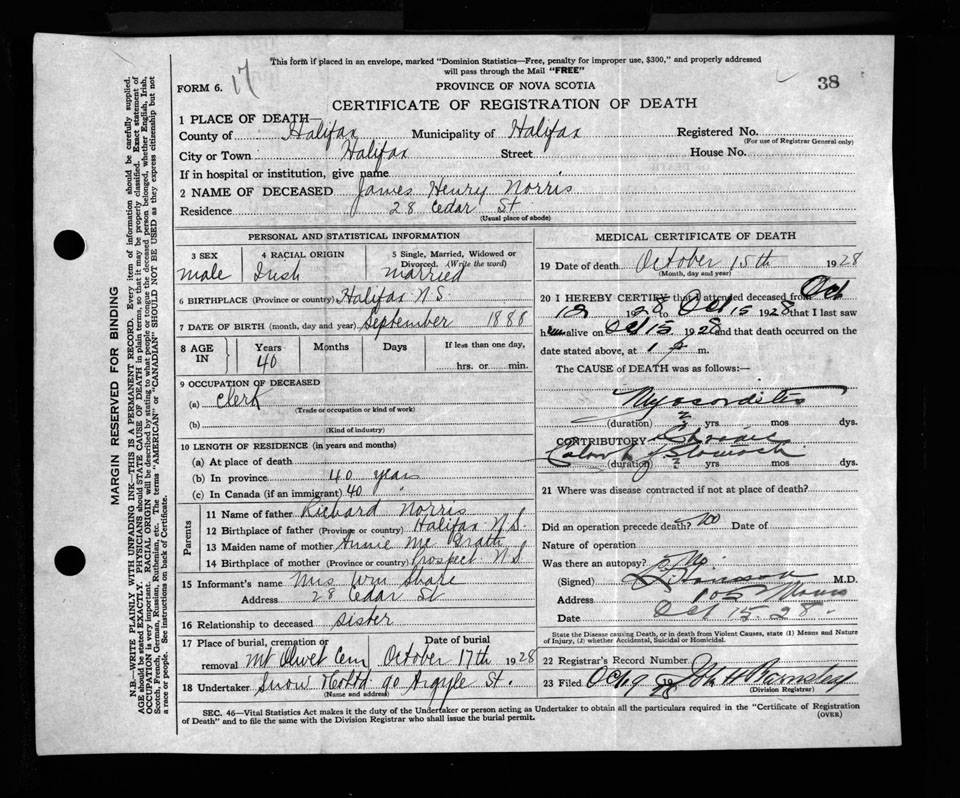 This form if placed in an envelope, marked "Dominion Statistics—Free, penalty for improper use, $300," and properly addressed
will pass through the Mail "FREE"
FORM 6. 17
PROVINCE OF NOVA SCOTIA
38
CERTIFICATE OF REGISTRATION OF DEATH
1 PLACE OF DEATH—
County of Halifax Municipality of Halifax Registered No.
(For use of Registrar General only)
City or Town Halifax Street House No.
If in hospital or institution, give name
2 NAME OF DECEASED James Henry Norris
Residence 28 Cedar St
(Usual place of abode)
PERSONAL AND STATISTICAL INFORMATION
3 SEX
male
4 RACIAL ORIGIN
Irish
5 Single, Married, Widowed or
Divorced. (Write the word)
married
6 BIRTHPLACE (Province or country) Halifax N.S.
7 DATE OF BIRTH (month, day and year) September 1888
8 AGE IN
Years Months Days If less than one day,
40 hrs. or min.
9 OCCUPATION OF DECEASED
(a) Clerk
(Trade or occupation or kind of work)
(b)
(Kind of industry)
10 LENGTH OF RESIDENCE (in years and months)
(a) At place of death
(b) In province 40 years
(c) In Canada (if an immigrant) 40
Parents
11 Name of father Richard Norris
12 Birthplace of father (Province or country) Halifax N.S.
13 Maiden name of mother Annie Mc Grath
14 Birthplace of mother (Province or country) Prospect N.S
15 Informant's name Mrs Wm
Address 28 Cedar St
16 Relationship to deceased sister
17 Place of burial, cremation or Date of burial
removal Mt Olivet Cem October 17th 1928
18 Undertaker Snow 90 Argyle St.
(Name and address)
MEDICAL CERTIFICATE OF DEATH
19 Date of death October 15th 1928
(Month, day and year)
20 I HEREBY CERTIFY that I attended deceased from Oct
12 1928 to Oct 15 1928 that I last saw
h alive on Oct 15 1928 and that death occurred on
date stated above, at 1 p m.
The CAUSE of DEATH was as follows:—
Myocarditis
(duration) yrs mos dys.
CONTRIBUTORY
(duration) yrs mos dys.
21 Where was disease contracted if not at place of death?
Did an operation precede death? No Date of
Nature of operation
Was there an autopsy? No
(Signed) M.D.
Address 105 Morris
Date Oct 15. 28.
State the Disease causing Death, or in death from Violent Causes, state (1) Means and Nature
of Injury, (2) whether Accidental, Suicidal or Homicidal.
22 Registrar's Record Number
23 Filed Oct 19 1928 John H Barnstead
(Division Registrar)
SEC. 46—Vital Statistics Act makes it the duty of the Undertaker or person acting as Undertaker to obtain all the particulars required in the "Certificate of Registration
of Death" and to file the same with the Division Registrar who shall issue the burial permit.
(OVER)
MARGIN RESERVED FOR BINDING
N.B.—WRITE PLAINLY WITH UNFADING INK—THIS IS A PERMANENT RECORD. Every item of information should be carefully supplied.
AGE should be stated EXACTLY. PHYSICIANS should STATE CAUSE OF DEATH in plain terms, so that it may be properly classified. Exact statement of
OCCUPATION is very important. RACIAL ORIGIN will be described by stating to what people or tongue the deceased person belonged, whether English, Irish,
Scotch, French, German, Russian, Ruthenian, etc. The terms "AMERICAN" or "CANADIAN" SHOULD NOT BE USED as they express citizenship but not
a race or people. See instructions on back of Certificate.